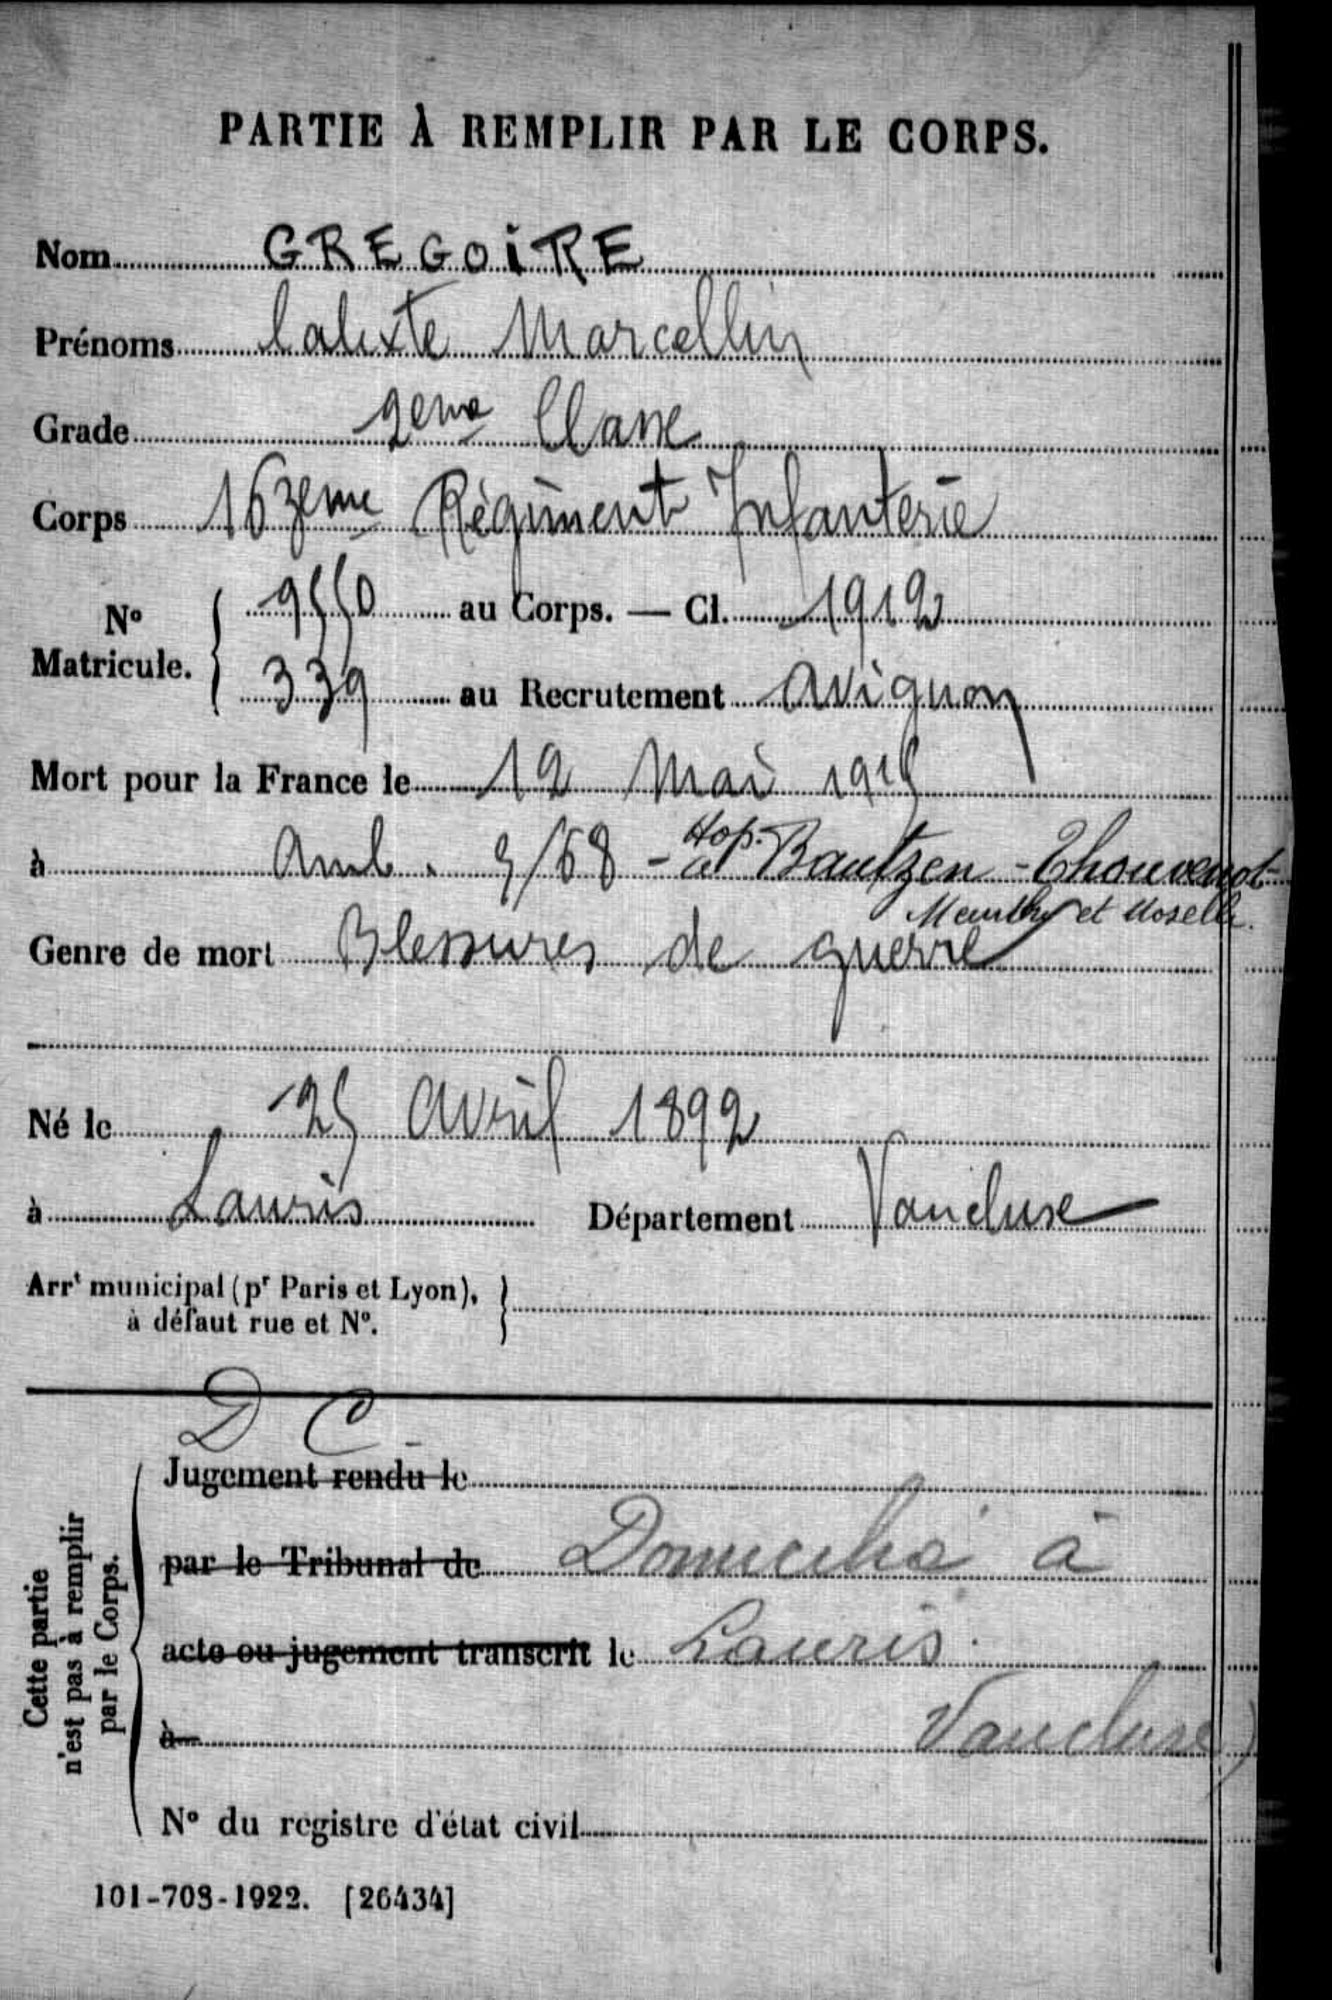 PARTIE À REMPLIR PAR LE CORPS.
Nom GREGOiRE
Prénoms Calixte Marcellin
Grade 2eme Classe
Corps 163eme Régiment Infanterie
No Matricule. 9550 au Corps. — Cl. 1912
339 au Recrutement Avignon
Mort pour la France le 12 Mai 1915
à Amb. 5/68 - Hop. Bautzen - Thouvenot
Meurthe et Moselle.
Genre de mort Blessures de guerre
Né le 25 Avril 1892
à Lauris Département Vaucluse
Arrt municipal (pr Paris et Lyon),
à défaut rue et No.
D C
Cette partie
n'est pas à remplir
par le Corps.
Jugement rendu le
par le Tribunal de Domicilié à
acte ou jugement transcrit le Lauris.
à Vaucluse)
No du registre d'état civil
101-708-1922. [26434]